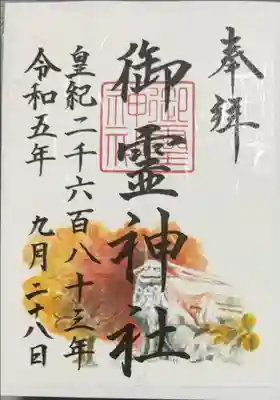 奉拝
御霊神社
皇紀二千六百八十三年
令和五年 九月二十八日